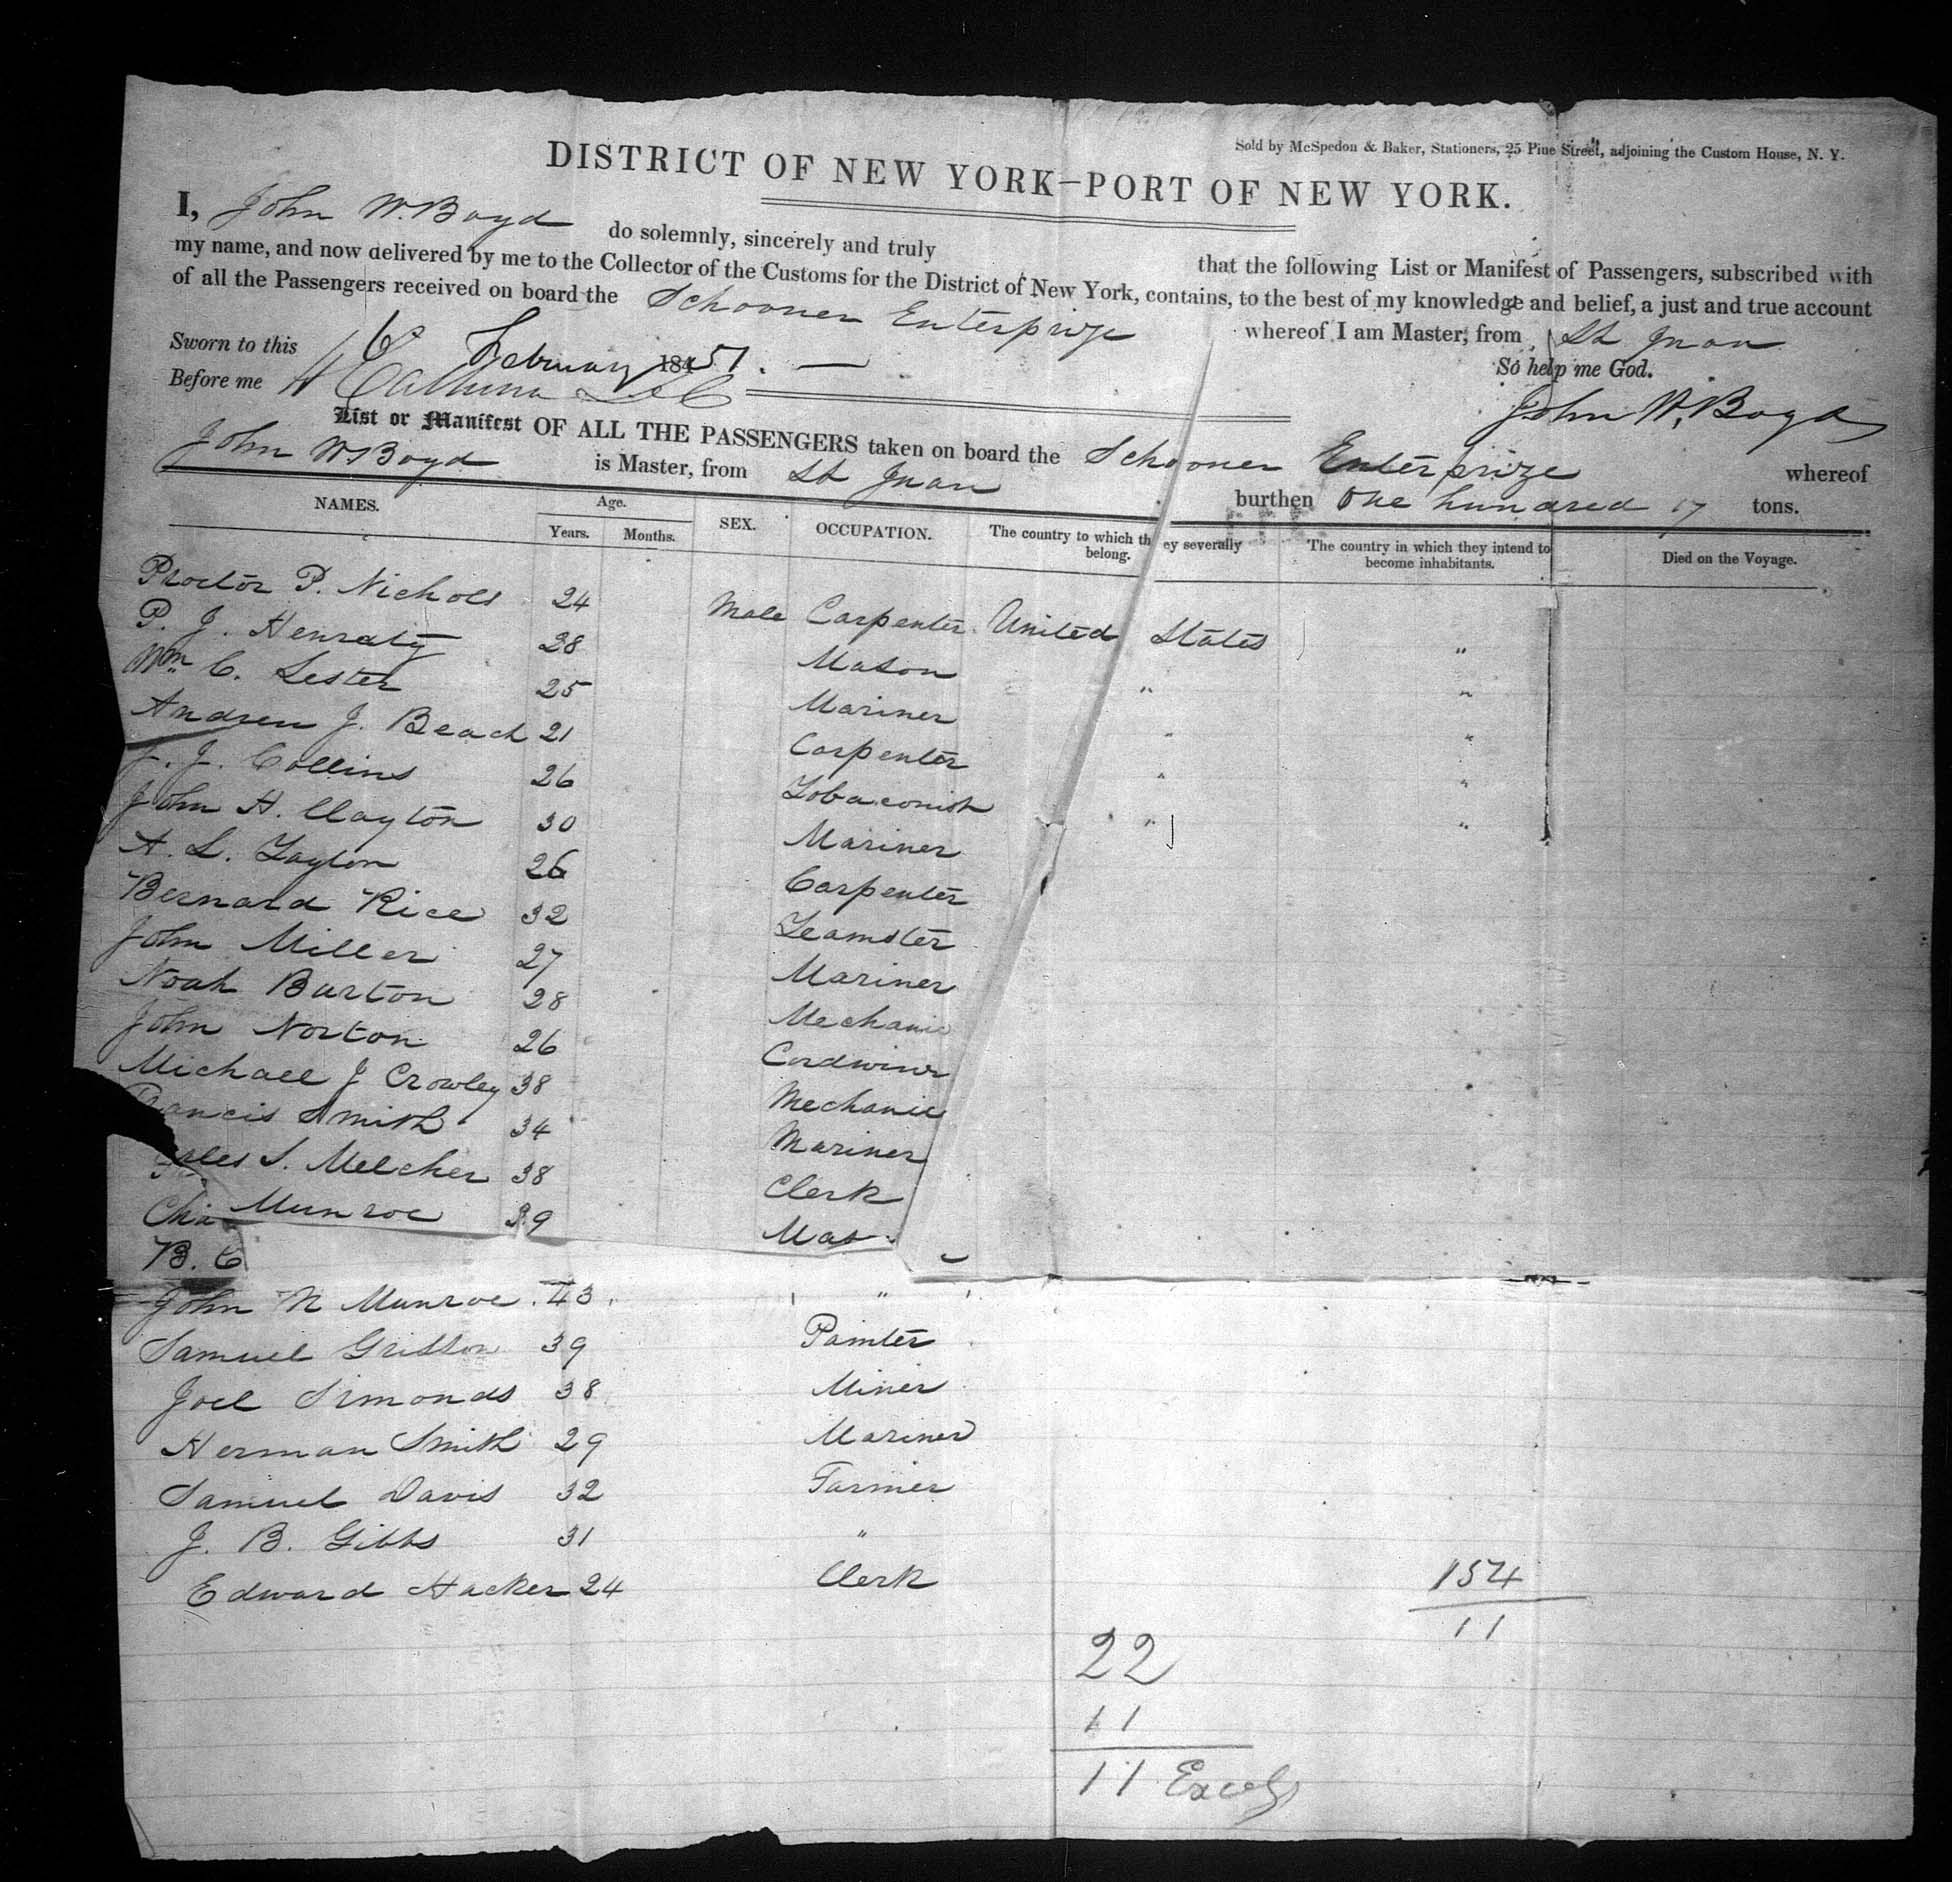 Sold by McSpedon & Baker, Stationers, 25 Pine Street, adjoining the Custom House, N. Y.
DISTRICT OF NEW YORK—PORT OF NEW YORK.
I, John W. Boyd do solemnly, sincerely and truly that the following List or Manifest of Passengers, subscribed with
my name, and now delivered by me to the Collector of the Customs for the District of New York, contains, to the best of my knowledge and belief, a just and true account
of all the Passengers received on board the Schooner Enterprize whereof I am Master, from St Juan
Sworn to this 6 February 1851. So help me God.
Before me John W. Boyd
List or Manifest OF ALL THE PASSENGERS taken on board the Schooner Enterprize whereof
John W. Boyd is Master, from St Juan burthen One hundred 17 tons.
NAMES. Age. Years. Months. SEX. OCCUPATION. The country to which they severally belong. The country in which they intend to become inhabitants. Died on the Voyage.
Proctor P. Nichols 24 Male Carpenter United States "
P. J. Henraty 28 Mason " "
Wm C. Lester 25 Mariner " "
Andrew J. Beach 21 Carpenter " "
J. J. Collins 26 Tobaconist " "
John H. Clayton 30 Mariner
A. L. Taylor 26 Carpenter
Bernard Rice 32 Teamster
John Miller 27 Mariner
Noah Burton 28 Mechanic
John Norton 26 Cordwiner
Michael J Crowley 38 Mechanic
Francis Smith 34 Mariner
S. Melcher 38 Clerk
Cha Munroe 39 Mas
B. C
John N Munroe 43 "
Samuel 39 Painter
Joel Simonds 38 Miner
Herman Smith 29 Mariner
Samuel Davis 32 Farmer
J. B. Gibbs 31 "
Edward Hacker 24 Clerk
154
11
22
11
11 Excess